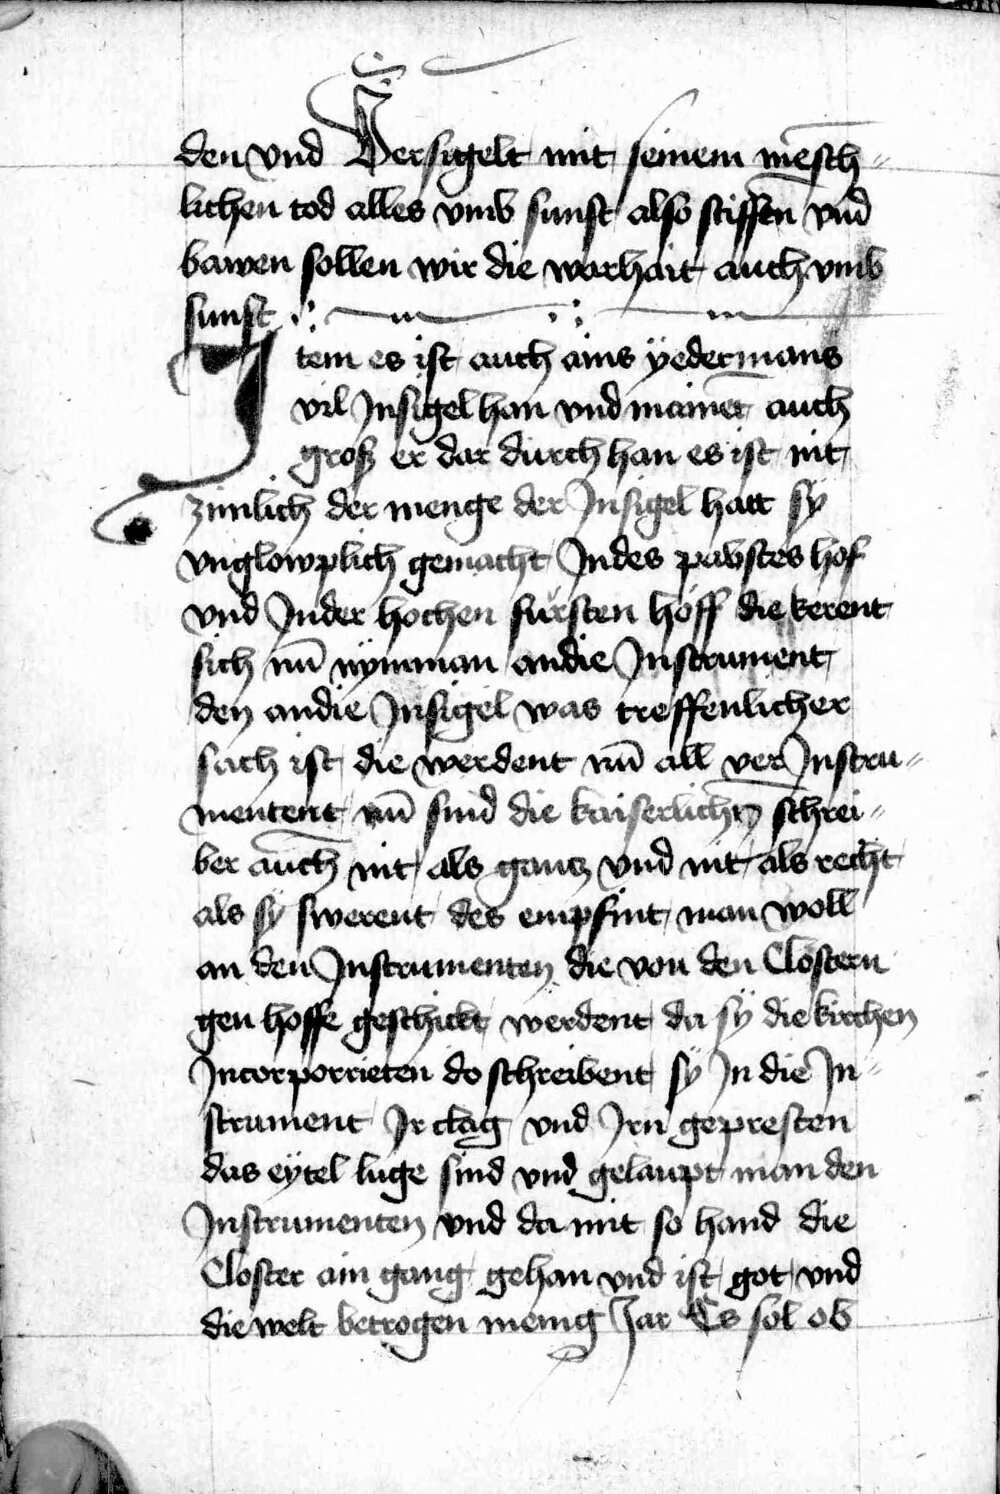 den vnd Versigelt mit seinem mensch=
lichen tod alles vmb sunst also stifften vnd
bawen sollen wir die warhait auch vmb
sunst
Item es ist auch ains ÿedermans
vil Insigel han vnd mainet auch
groß er dar durch han es ist nit
zimlich der menge der Insigel hatt sÿ
vnglowplich gemacht In des pabstes hof
vnd In der hochen fürsten höff die kerent
sich nu nÿmman an die Instrument
den an die Insigel was treffenlicher
sach ist die werdent nu all ver Instru=
mentent nu sind die kaiserlichen schrei=
ber auch nit als gantz vnd nit als recht
als sÿ swerent des empfint man woll
an den Instrumenten die von den Clöstern
gen hoffe geschickt werdent da sÿ die kirchen
Incorporrieten do schreibent sÿ In die In=
strument Ir clag vnd Irn gepresten
das eÿtel luge sind vnd gelaupt man den
Instrumenten vnd da mit so hand die
Closter ain gang gehan vnd ist got vnd
die welt betrogen menig Jar Es sol ob